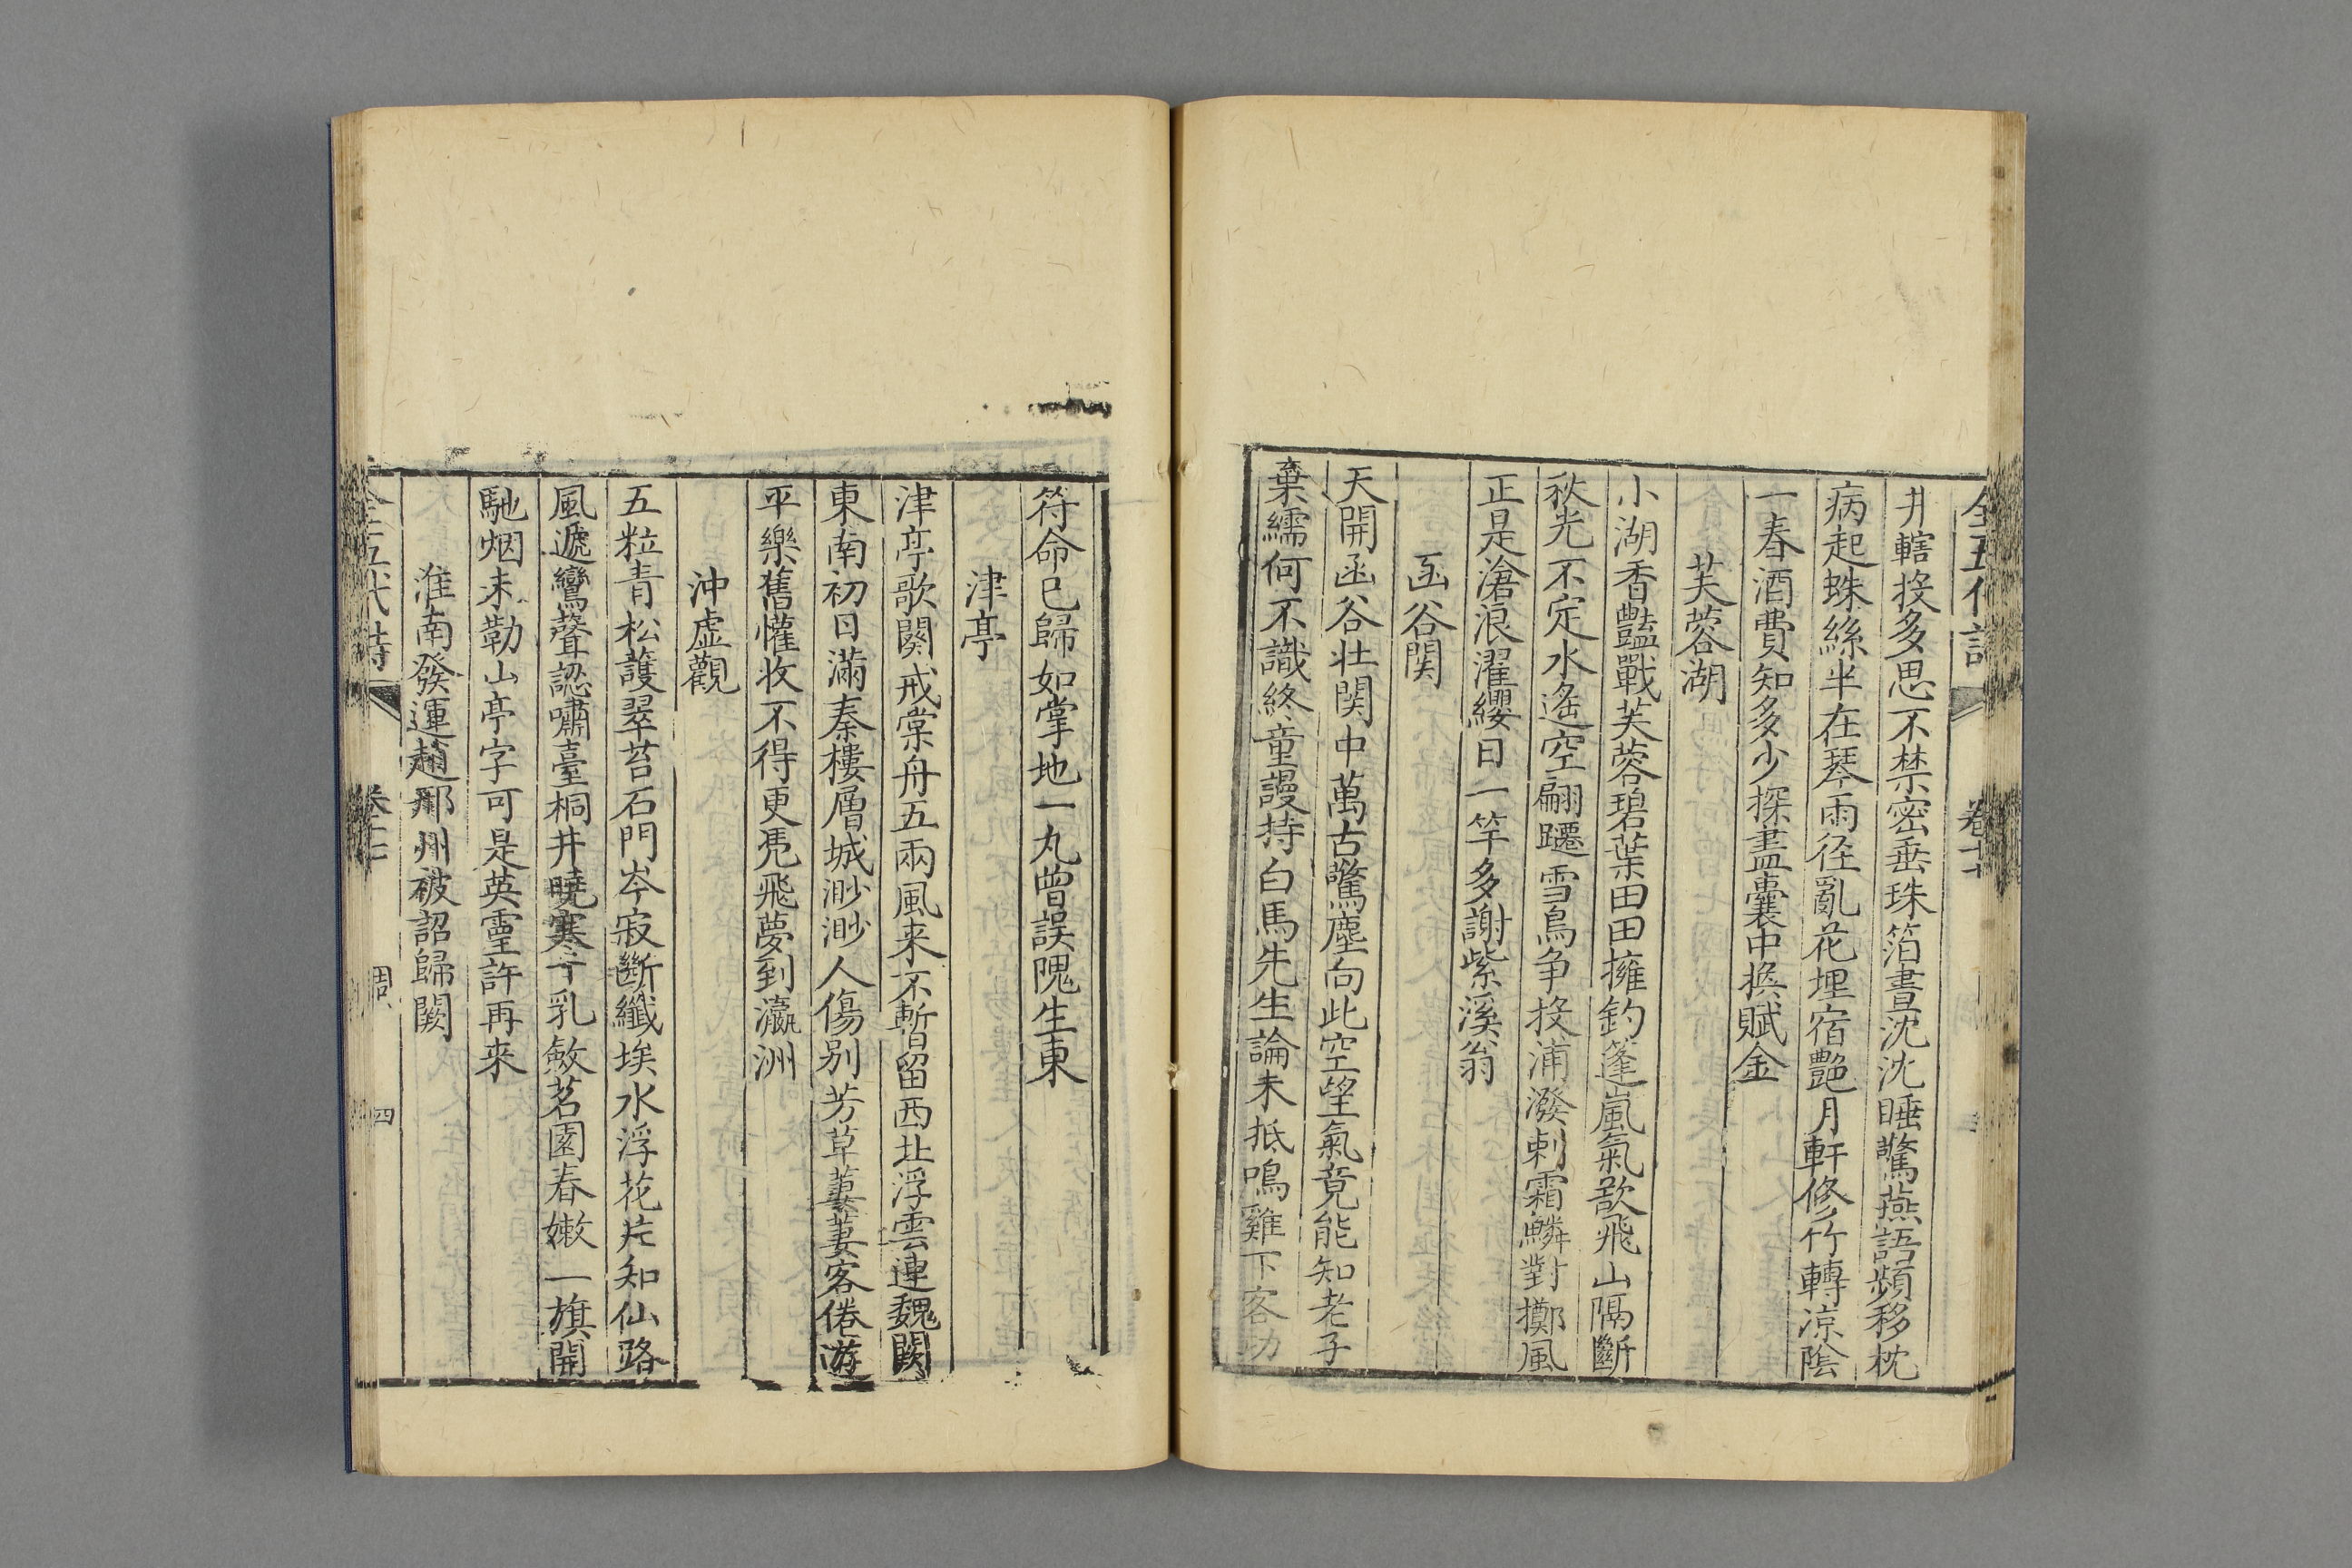 井轄投多思不禁密垂珠箔晝沈沈睡驚燕語頻移枕
病起蛛絲半在琴雨徑亂花埋宿艷月軒修竹轉涼陰
一春酒費知多少探盡囊中換賦金
芙蓉湖
小湖香豔戰芙蓉碧葉田田擁釣篷嵐氣歘飛山隔斷
秋光不定水遙空翩躚雪鳥争投浦潑剌霜鱗對擲風
正是滄浪濯纓日一竿多謝紫溪翁
函谷関
天開函谷壮関中萬古驚塵向此空望氣竟能知老子
棄繻何不識終童謾持白馬先生論未抵鳴雞下客功
符命已歸如掌地一丸曾誤隗生東
津亭
津亭歌闋戒棠舟五兩風来不暫留西北浮雲連魏闕
東南初日滿秦樓層城渺渺人傷别芳草萋萋客倦遊
平樂舊懽收不得更凭飛夢到瀛洲
沖虛觀
五粒青松護翠苔石門岑寂斷纖埃水浮花片知仙路
風遞鸞聲認嘯臺桐井曉寒千乳斂茗園春嫩一旗開
馳烟未勒山亭字可是英靈許再来
淮南發運趙邢州被詔歸闕
全五代詩 卷十七 周 四